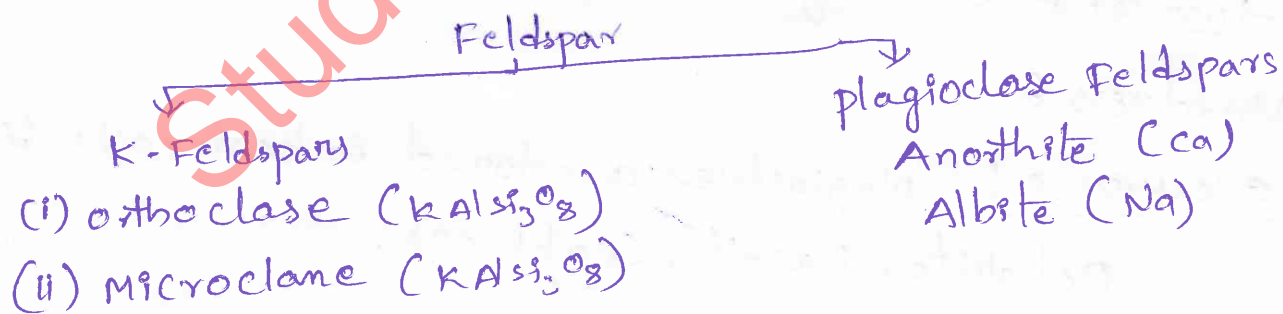 Stud
Feldspar
K-Feldspars
(i) orthoclase (KAlSi3O8)
(ii) Microclane (KAlSi3O8)
plagioclase Feldspars
Anorthite (Ca)
Albite (Na)